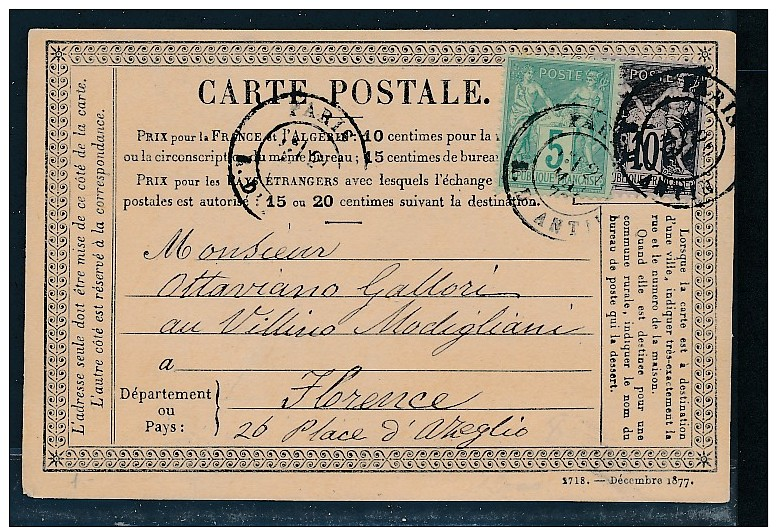 CARTE POSTALE.
PRIX pour la FRANCE et l'ALGÉRIE: 10 centimes pour la
ou la circonscription du même bureau; 15 centimes de bureau
PRIX pour les PAYS ÉTRANGERS avec lesquels l'échange
postales est autorisé 15 ou 20 centimes suivant la destination.
POSTE
5
RÉPUBLIQUE FRANÇAISE
POSTE
10
PARIS
PARIS
R. D'ANTIN
Monsieur
Ottaviano Gallori
au Villino Modigliani
a
Florence
Département
ou
Pays :
26 Place d'Azeglio
L'adresse seule doit être mise de ce côté de la carte.
L'autre côté est réservé à la correspondance.
Lorsque la carte est à destination
d'une ville, indiquer très-exactement la
rue et le numéro de la maison.
Quand elle est destinée pour une
commune rurale, indiquer le nom du
bureau de poste qui la dessert.
1718. — Décembre 1877.